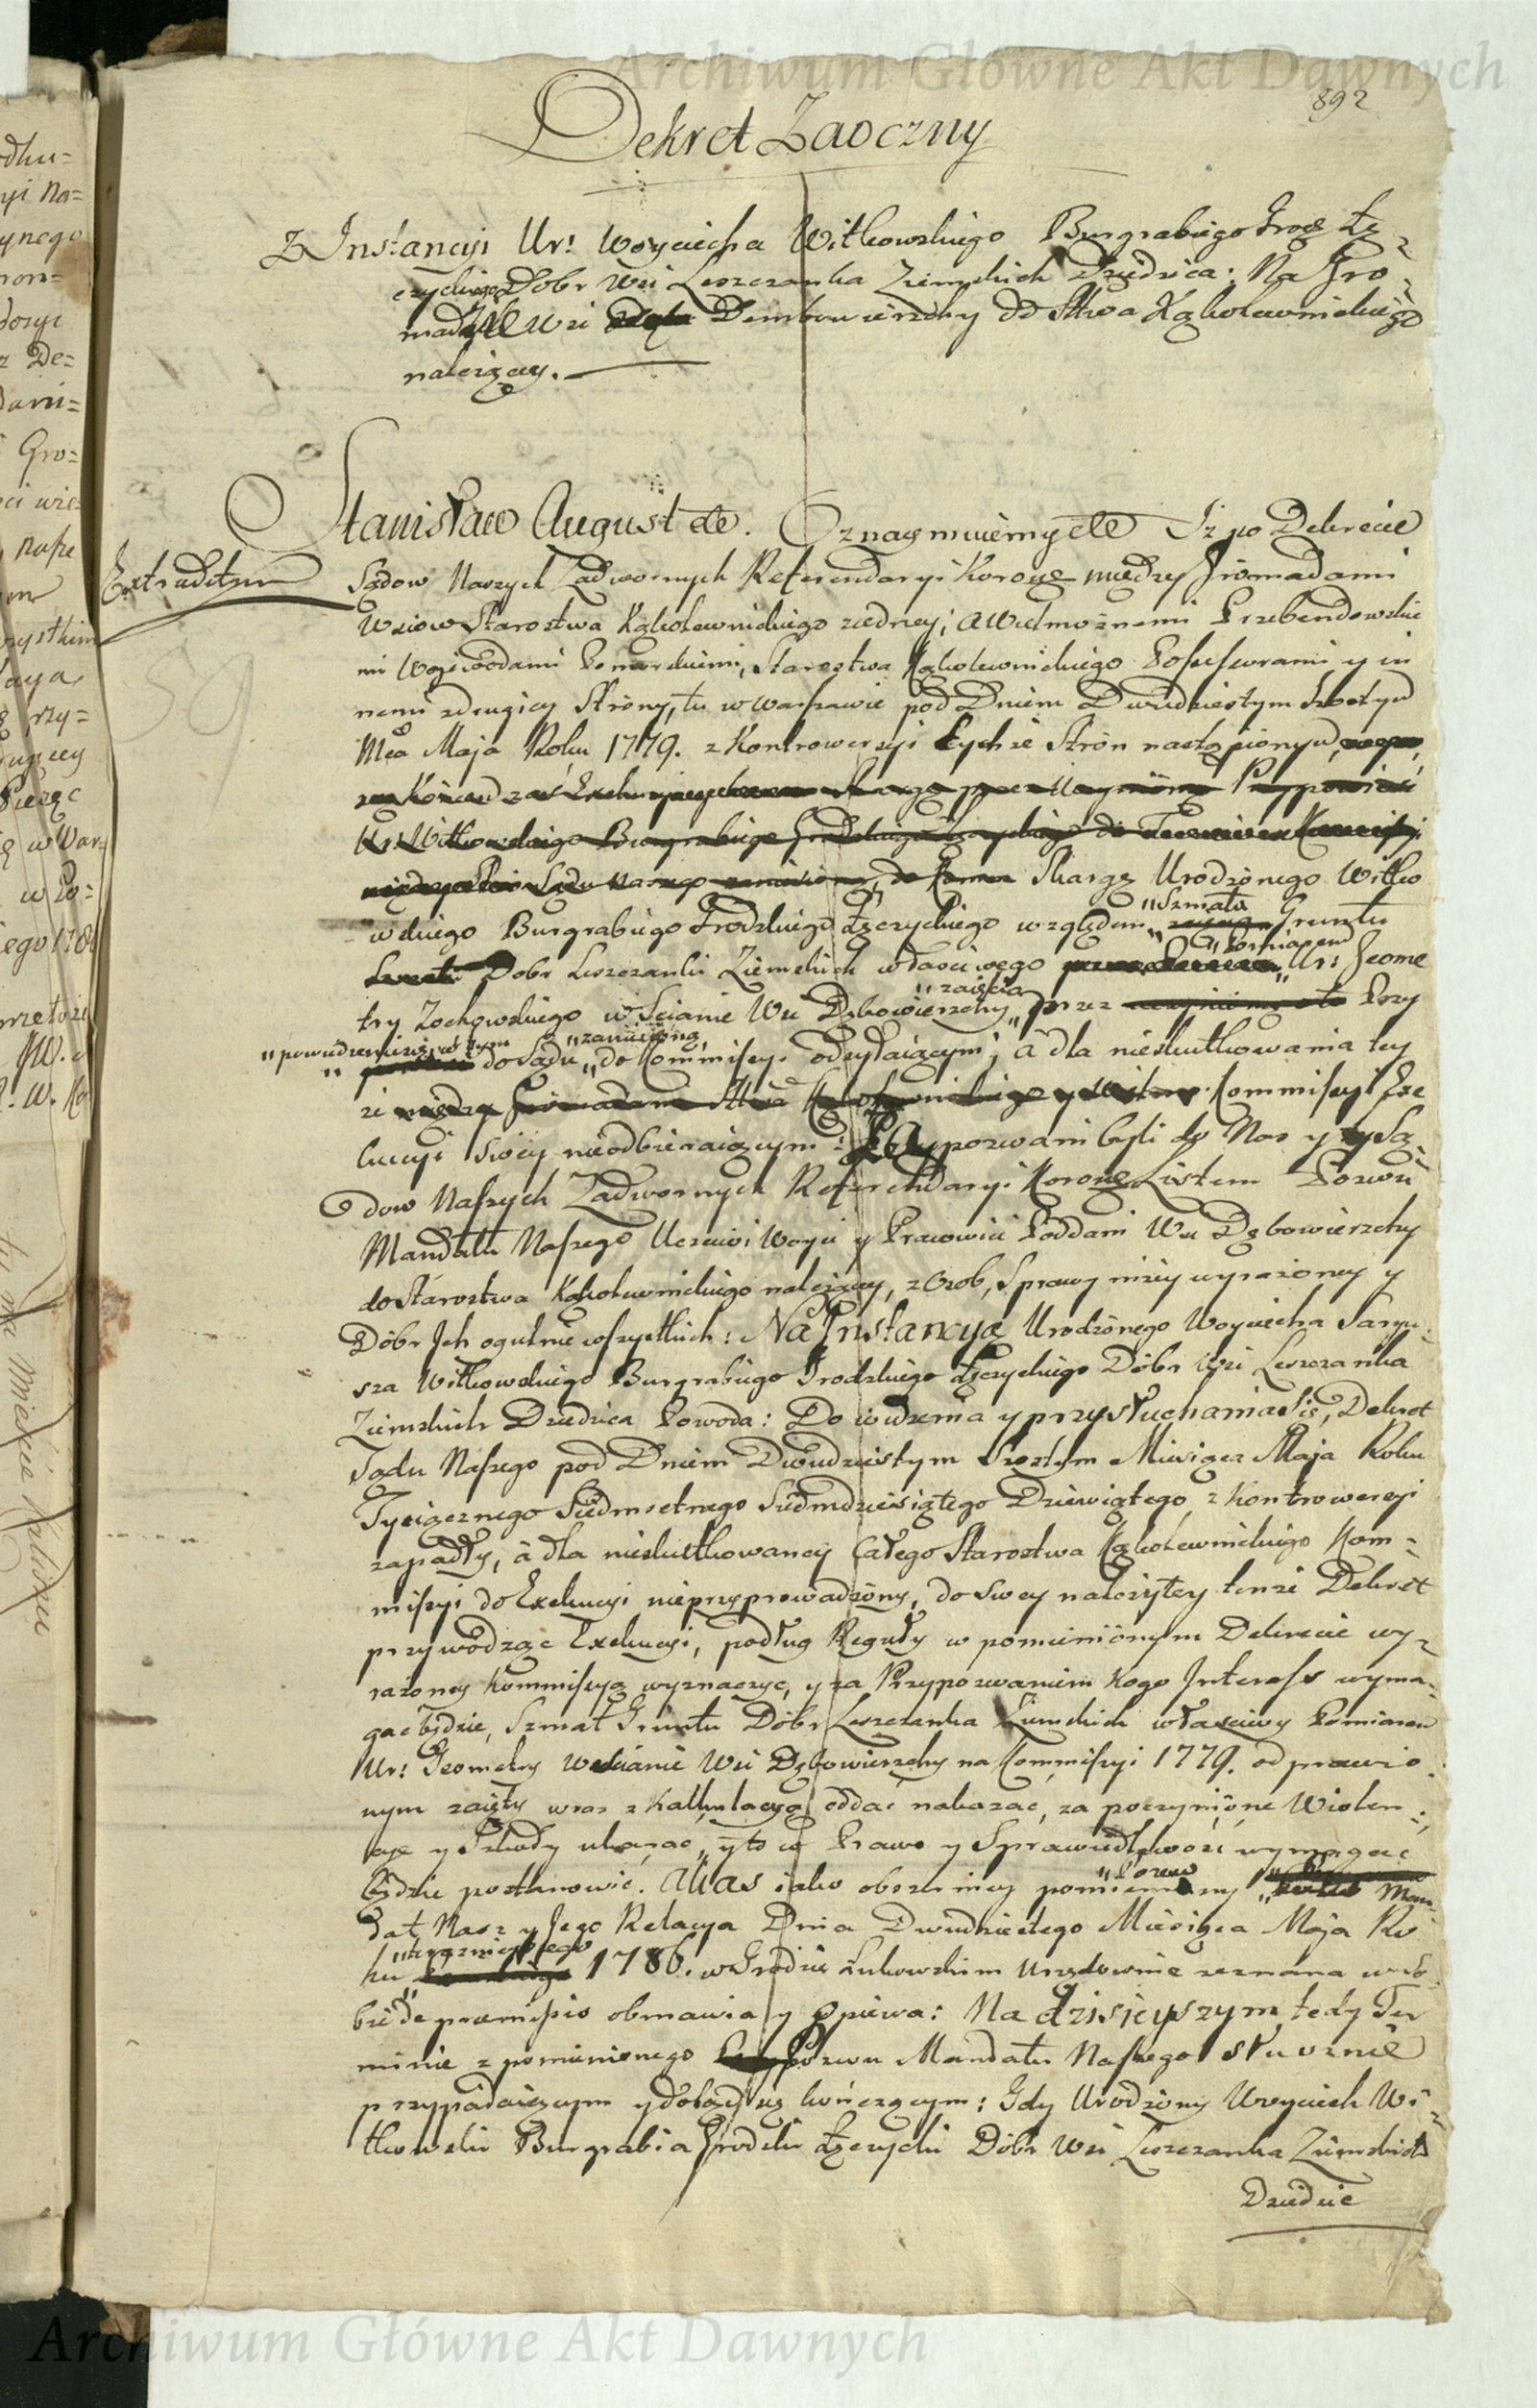 Archiwum Główne Akt Dawnych
892
Dekret Zaoczny
Z Instancyi Ur: Woyciecha Witkowskiego Burgrabiego Grog Łę
czyckiego Dobr Wsi Leszczanka Ziemskich Dziedzica: Na Gro
madzie Wsi Dembowierzchy do Sttwa Kąkolewnickiego
należący.
Stanisław August etc. Oznaymuiemy etc Iż po Dekrecie
Extraditum
Sądow Naszych Zadwornych Referendaryi Koroney między Gromadami
Wsiow Starostwa Kąkolewnickiego z iedney; a Wielmożnemi Przebendowskie
mi Woiewodami Pomorskiemi, Starostwa Kąkolewnickiego Possessorami y in
nemi z drugiey Strony, tu w Warszawie pod Dniem Dwudziestym Szostym
Mca Maja Roku 1779. z Kontrowersyi tychże Strón nastąpionym,
Ur: Witkowskiego Burgrabiego Grodzkiego Łęczyckiego do Kommissyi
Skargę Urodzonego Witko
"Szmata
wskiego Burgrabiego Grodzkiego Łęczyckiego względem Gruntu
"Pomiarem
Dobr Leszczanki Ziemskich własciwego Ur: Jeome
"zaięcia
try Zochowskiego w Scianie Wsi Dębowierzchy przez Przy
"powiedzeniu się, w tym "zaniesioną
do Sądu do Kommissyi odsyłaiącym; a dla nieskutkowania tey
że Kommissyi Exe
kucyi swoiey nieodbieraiącym: Przypozwani byli do Nas y Są
dow Naszych Zadwornych Referendaryi Koroney Listem Pozwu
Mandatu Naszego Uczciwi Woyt y Pracowici Poddani Wsi Dębowierzchy
do Starostwa Kąkolewnickiego należący, z Osob, Sprawy niżey wyrażoney y
Dóbr Ich ogulnie wszystkich: Na Instancyą Urodzonego Woyciecha Saryu
sza Witkowskiego Burgrabiego Grodzkiego Łęczyckiego Dóbr Wsi Leszczanka
Ziemskich Dziedzica Powoda: Do widzenia y przysłuchania się, Dekret
Sądu Naszego pod Dniem Dwudziestym Szostym Miesiąca Maja Roku
Tysiącznego Siedmsetnego Siedmdziesiątego Dziewiątego z Kontrowersyi
zapadły, a dla nieskutkowaney całego Starostwa Kąkolewnickiego Kom
missyi do Exekucyi nieprzyprowadzony, do swey należytey tenże Dekret
przywodząc Exekucyi, podług Reguły w pomienionym Dekrecie wy
rażoney Kommissyą wyznaczyc, y za Przypozwaniem kogo Interess wyma
gac będzie, Szmat Gruntu Dóbr Leszczanka Ziemskich własciwy Pomiarem
Ur: Jeometry w scianie Wsi Dębowierzchy na Kommissyi 1779. odprawio
nym zaięty wraz z Kalkulacyą oddac nakazac, za poczynione Wiolen
cye y Szkody ukarac, y to co Prawo y Sprawiedliwość wymagac
będzie postanowic. Alias iako obszerniey pomieniony "Pozew Man
dat Nasz y Jego Relacya Dnia Dwudziestego Miesiąca Maja Ro
"teraznieyszego
ku 1786. w Grodzie Łukowskim Urzędownie zeznana w so
bie de praemissis obmawia y opiewa: Na dzisieyszym tedy Ter
minie z pomienionego Pozwu Mandatu Naszego słusznie
przypadaiącym y dotąd się kończącym: Gdy Urodzony Woyciech Wi
tkowski Burgrabia Grodzki Łęczycki Dóbr Wsi Leszczanka Ziemskich
Dziedzic
Archiwum Główne Akt Dawnych